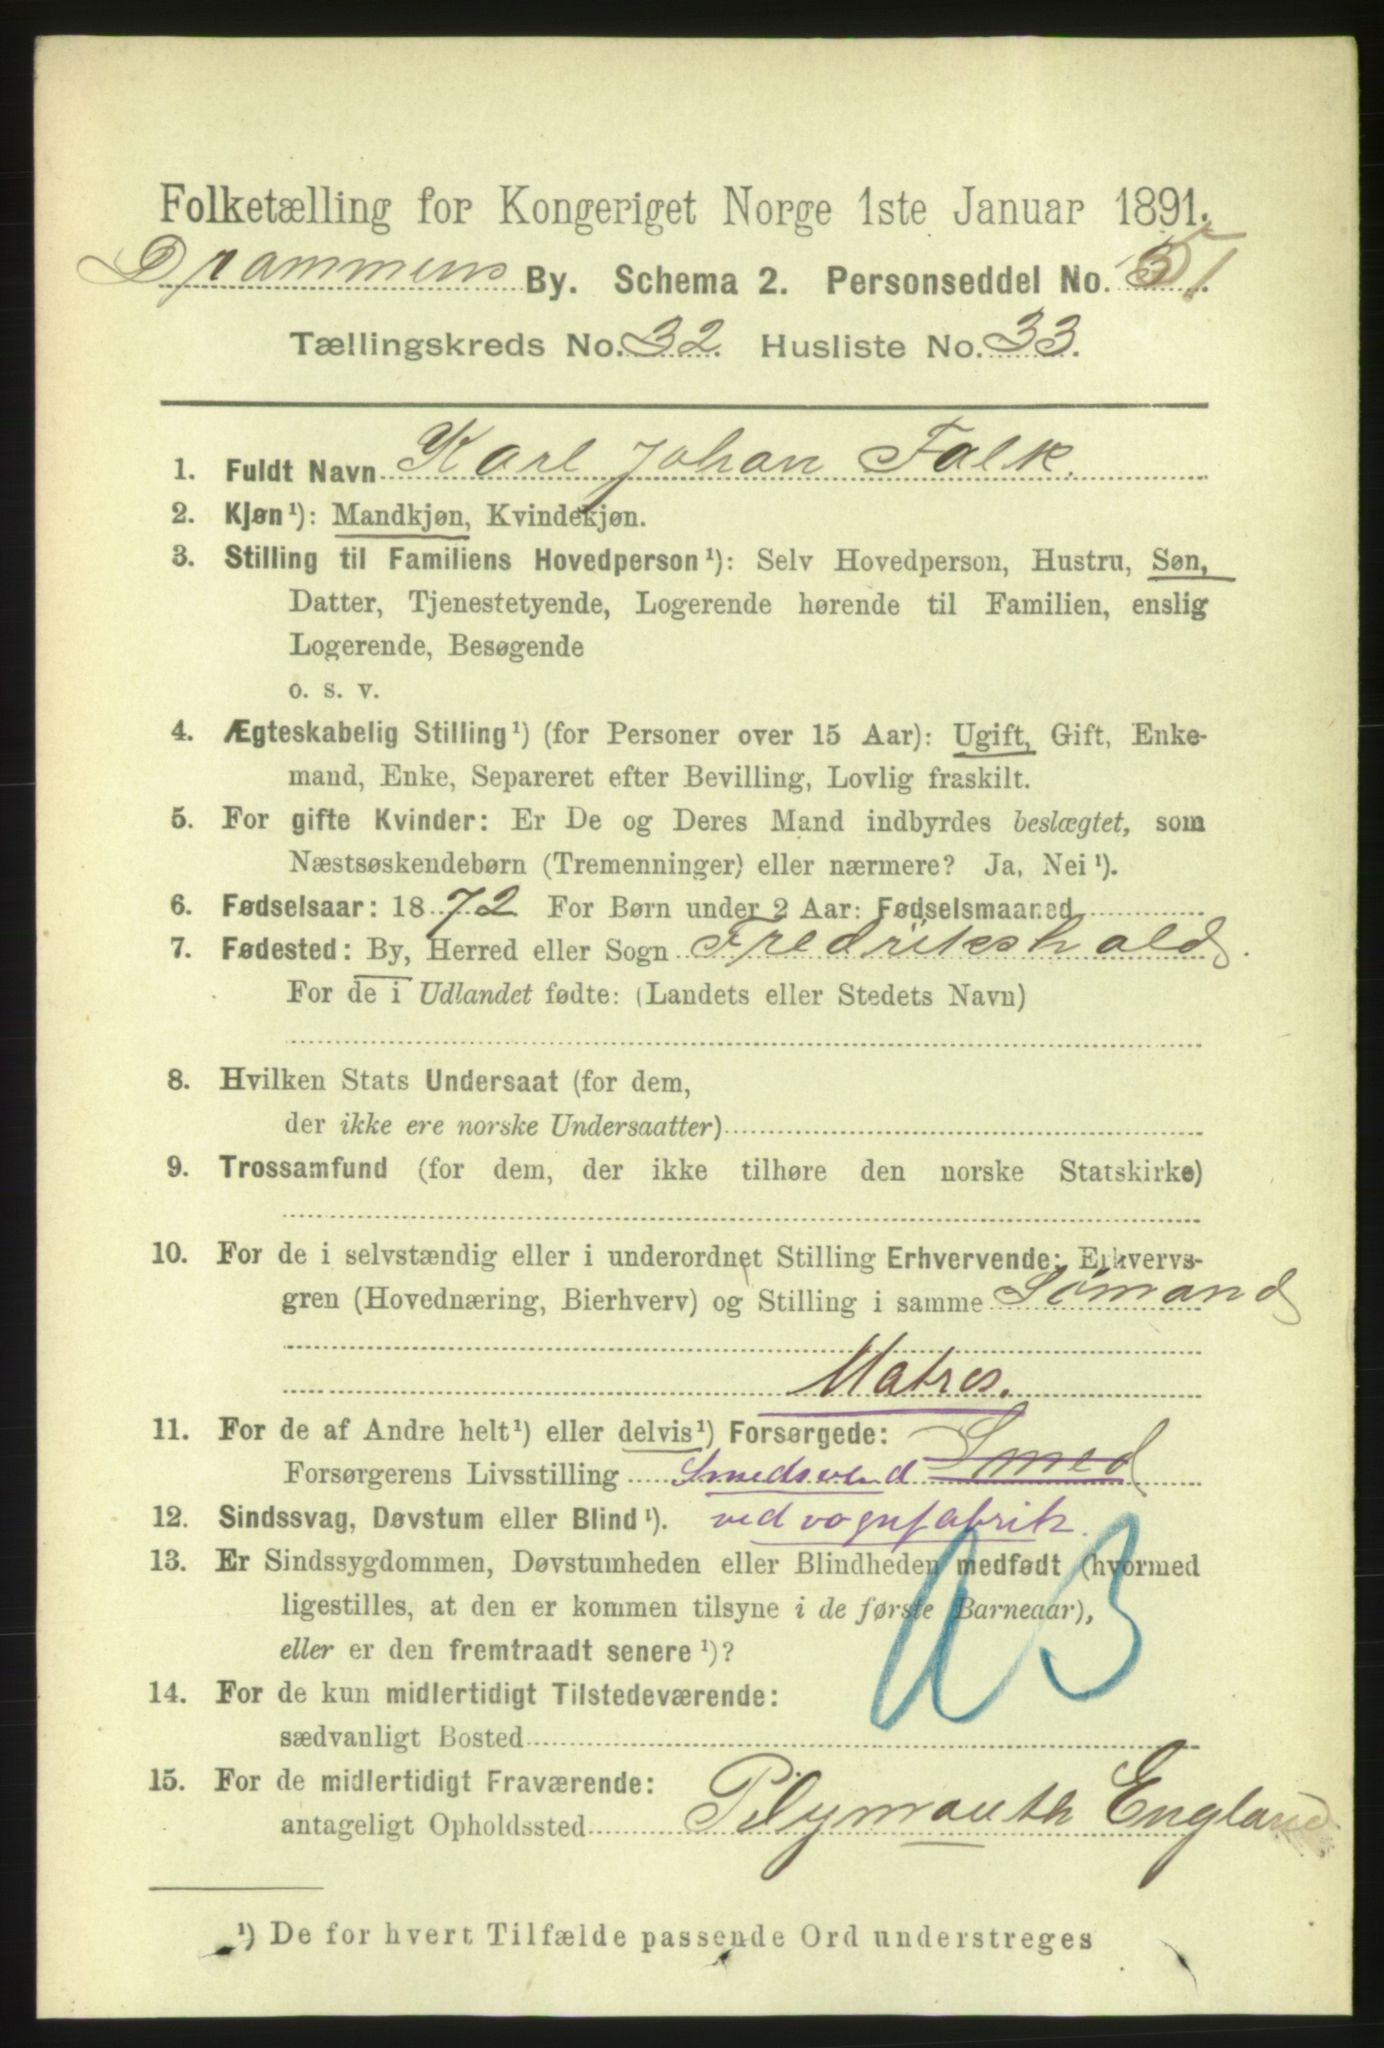 Folketælling for Kongeriget Norge 1ste Januar 1891.
Drammens By. Schema 2. Personseddel No. 51
Tællingskreds No. 32. Husliste No. 33.
1. Fuldt Navn Karl Johan Falk.
2. Kjøn¹): Mandkjøn, Kvindekjøn.
3. Stilling til Familiens Hovedperson¹): Selv Hovedperson, Hustru, Søn,
Datter, Tjenestetyende, Logerende hørende til Familien, enslig
Logerende, Besøgende
o. s. v.
4. Ægteskabelig Stilling¹) (for Personer over 15 Aar): Ugift, Gift, Enke-
mand, Enke, Separeret efter Bevilling, Lovlig fraskilt.
5. For gifte Kvinder: Er De og Deres Mand indbyrdes beslægtet, som
Næstsøskendebørn (Tremenninger) eller nærmere? Ja, Nei¹).
6. Fødselsaar: 1872 For Børn under 2 Aar: Fødselsmaaned
7. Fødested: By, Herred eller Sogn Fredrikshald.
For de i Udlandet fødte: (Landets eller Stedets Navn)
8. Hvilken Stats Undersaat (for dem,
der ikke ere norske Undersaatter)
9. Trossamfund (for dem, der ikke tilhøre den norske Statskirke)
10. For de i selvstændig eller i underordnet Stilling Erhvervende: Erhvervs-
gren (Hovednæring, Bierhverv) og Stilling i samme Sømand
Matros.
11. For de af Andre helt¹) eller delvis¹) Forsørgede:
Forsørgerens Livsstilling Smedsvend Smed
12. Sindssvag, Døvstum eller Blind¹). ved vognfabrik.
13. Er Sindssygdommen, Døvstumheden eller Blindheden medfødt (hvormed
ligestilles, at den er kommen tilsyne i de første Barneaar),
eller er den fremtraadt senere¹)?
14. For de kun midlertidigt Tilstedeværende:
sædvanligt Bosted
15. For de midlertidigt Fraværende:
antageligt Opholdssted Plymouth England
¹) De for hvert Tilfælde passende Ord understreges